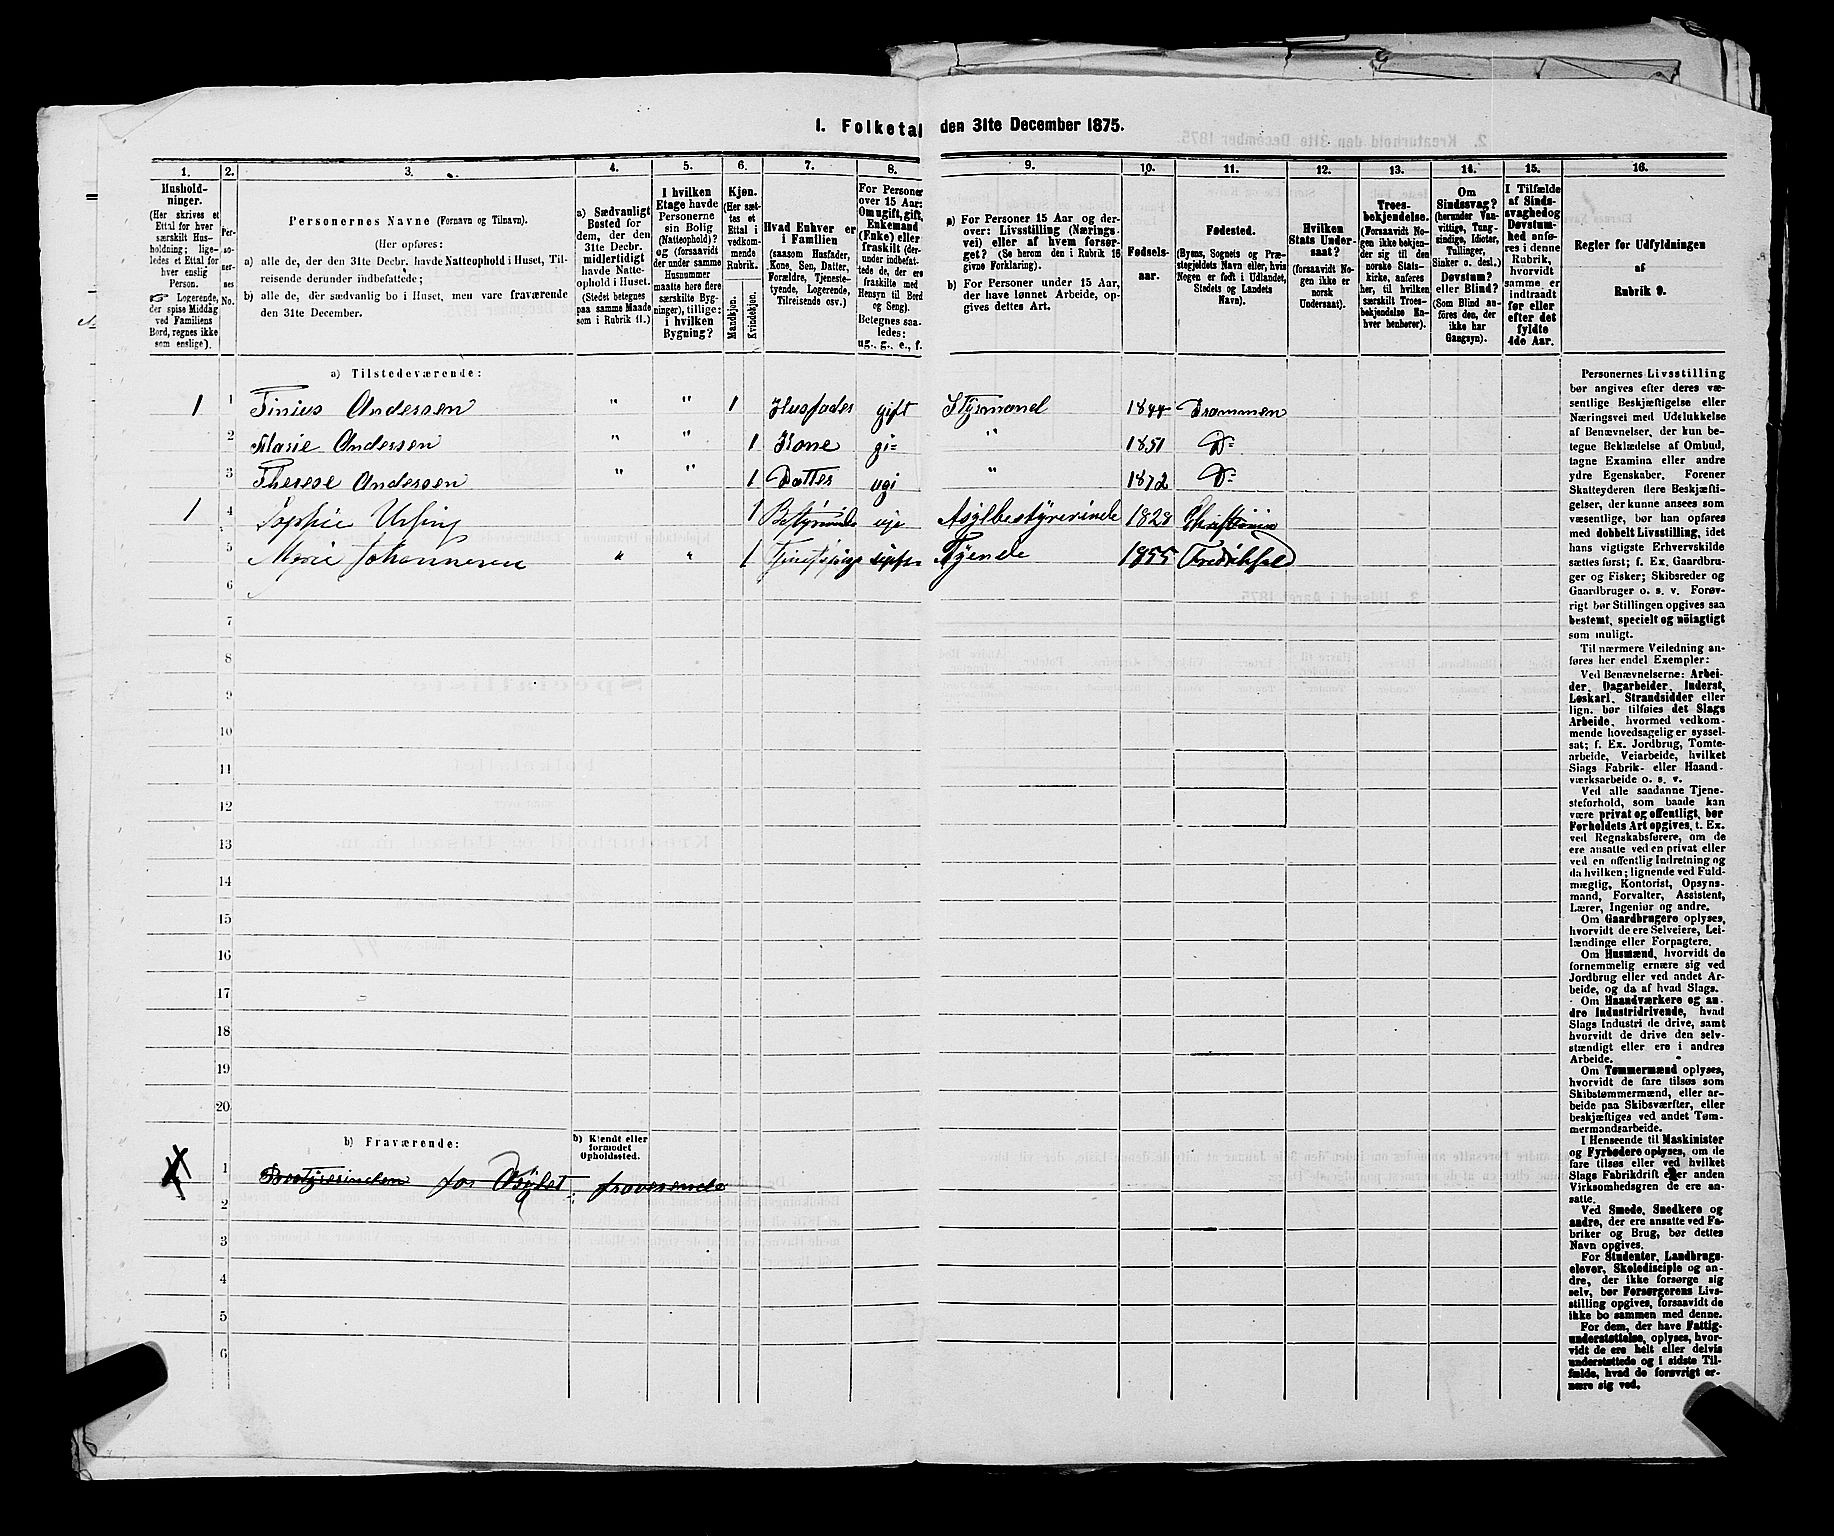 1. Folketal den 31te December 1875.
1. 2. 3. 4. 5. 6. 7. 8. 9. 10. 11. 12. 13. 14. 15. 16.
Hushold-
ninger.
(Her skrives et
Ettal for hver
særskilt Hus-
holdning; lige-
ledes et Ettal for
hver enslig
Person.
☞ Logerende,
der spise Middag
ved Familiens
Bord, regnes ikke
som enslige).
Per-
so-
ner-
nes
No.
Personernes Navne (Fornavn og Tilnavn).
(Her opføres:
a) alle de, der den 31te Decbr. havde Natteophold i Huset, Til-
reisende derunder indbefattede;
b) alle de, der sædvanlig bo i Huset, men vare fraværende
den 31te December.
a) Sædvanligt
Bosted for
dem, der den
31te Decbr.
midlertidigt
havde Natte-
ophold i Huset.
(Stedet betegnes
paa samme Maade
som i Rubrik 11.)
I hvilken
Etage havde
Personerne
sin Bolig
(Natteophold)?
og (forsaavidt
der under samme
Husnummer
maatte høre flere
særskilte Byg-
ninger), tillige:
i hvilken
Bygning?
Kjøn.
(Her sæt-
tes et
Ettal i
vedkom-
mende
Rubrik.
Mandkjøn.
Kvindekjøn.
Hvad Enhver er
i Familien
(saasom Husfader,
Kone, Søn, Datter,
Forældre, Tjeneste-
tyende, Logerende,
Tilreisende osv.)
For Personer
over 15 Aar:
Om ugift, gift,
Enkemand
(Enke) eller
fraskilt (der-
under indbefat-
tede de, der ere
fraskilte med
Hensyn til Bord
og Seng).
Betegnes saa-
ledes:
ug., g., e., f.
a) For Personer 15 Aar og der-
over: Livsstilling (Nærings-
vei) eller af hvem forsør-
get? (Se herom den i Rubrik 16
givne Forklaring).
b) For Personer under 15 Aar,
der have lønnet Arbeide, op-
gives dettes Art.
Fødsels-
aar.
Fødested.
(Byens, Sognets og Præ-
stegjeldets Navn eller, hvis
Nogen er født i Udlandet,
Stedets og Landets
Navn).
Hvilken
Stats Under-
saat?
(forsaavidt No-
gen ikke er
norsk
Undersaat).
Troes-
bekjendelse.
(Forsaavidt No-
gen ikke bekjen-
der sig til den
norske Stats-
kirke, anføres
her, til hvilken
særskilt Troes-
bekjendelse En-
hver henhører).
Om
Sindssvag?
(herunder Van-
vittige, Tung-
sindige, Idioter,
Tullinger,
Sinker o. desl.)
Døvstum?
eller Blind?
(Som Blind an-
føres den, der
ikke har
Gangsyn).
I Tilfælde
af Sinds-
svaghed og
Døvstum-
hed anfø-
res i denne
Rubrik,
hvorvidt
samme er
indtraadt
før eller
efter det
fyldte
4de Aar.
Regler for Udfyldningen
af
Rubrik 9.
a) Tilstedeværende:
1 1 Tinius Andersen " " 1 Husfader gift Styrmand 1844 Drammen
2 Marie Andersen " " 1 Kone gi- " 1851 Do
3 Therese Andersen " " 1 Datter ugi " 1872 Do
1 4 Sophie 1 Asylbestyrerinde 1828 Christiania
5 Marie Johannesen " " 1 Tyende 1855
6
7
8
9
10
11
12
13
14
15
16
17
18
19
20
b) Fraværende:
b) Kjendt eller
formodet
Opholdssted.
1 Bestyrerinden for Asylet fraværende
2
3
4
5
6
Personernes Livsstilling
bør angives efter deres væ-
sentlige Beskjæftigelse eller
Næringsvei med Udelukkelse
af Benævnelser, der kun be-
tegne Beklædelse af Ombud,
tagne Examina eller andre
ydre Egenskaber. Forener
Skatteyderen flere Beskjæfti-
gelser, der kunne ansees som
væsentlige, bør han opføres
med dobbelt Livsstilling, idet
hans vigtigste Erhvervskilde
sættes først; f. Ex. Gaardbru-
ger og Fisker; Skibsreder og
Gaardbruger o. s. v. Forøv-
rigt bør Stillingen opgives saa
bestemt, specielt og nöiagtigt
som muligt.
Til nærmere Veiledning an-
føres her endel Exempler:
Ved Benævnelserne: Arbei-
der, Dagarbeider, Inderst,
Løskarl, Strandsidder eller
lign. bør tilføies det Slags
Arbeide, hvormed vedkom-
mende hovedsagelig er syssel-
sat; f. Ex. Jordbrug, Tomte-
arbeide, Veiarbeide, hvilket
Slags Fabrik- eller Haand-
værksarbeide o. s. v.
Ved alle saadanne Tjene-
steforhold, som baade kan
være privat og offentligt, bør
Forholdets Art opgives, t. Ex.
ved Regnskabsførere, om de
ere ansatte ved en privat eller
ved en offentlig Indretning og
da hvilken; lignende ved Fuld-
mægtig, Kontorist, Opsyns-
mand, Forvalter, Assistent,
Lærer, Ingeniør og andre.
Om Gaardbrugere oplyses,
hvorvidt de ere Selveiere, Lei-
lændinge eller Forpagtere.
Om Husmænd, hvorvidt de
fornemmelig ernære sig ved
Jordbrug eller ved andet Ar-
beide, og da af hvad Slags.
Om Haandværkere og an-
dre Industridrivende, hvad
Slags Industri de drive, samt
hvorvidt de drive den selv-
stændigt eller ere i andres
Arbeide.
Om Tømmermænd oplyses,
hvorvidt de fare tilsøs som
Skibstømmermænd, eller ar-
beide paa Skibsværfter, eller
beskjæftiges ved andet Tøm-
mermandsarbeide.
I Henseende til Maskinister
og Fyrbødere oplyses, om de
fare tilsøs eller ved hvilket
Slags Fabrikdrift eller anden
Virksomhedsgren de ere an-
satte.
Ved Smede, Snedkere og
andre, der ere ansatte ved Fa-
briker og Brug, bør dettes
Navn opgives.
For Studenter, Landbrugs-
elever, Skoledisciple og an-
dre, der ikke forsørge sig
selv, bør Forsørgerens Livs-
stilling opgives, forsaavidt de
ikke bo sammen med denne.
For dem, der have Fattig-
understøttelse, oplyses, hvor-
vidt de ere helt eller delvis
understøttede og i sidste Til-
fælde, hvad de forøvrigt er-
nære sig ved.